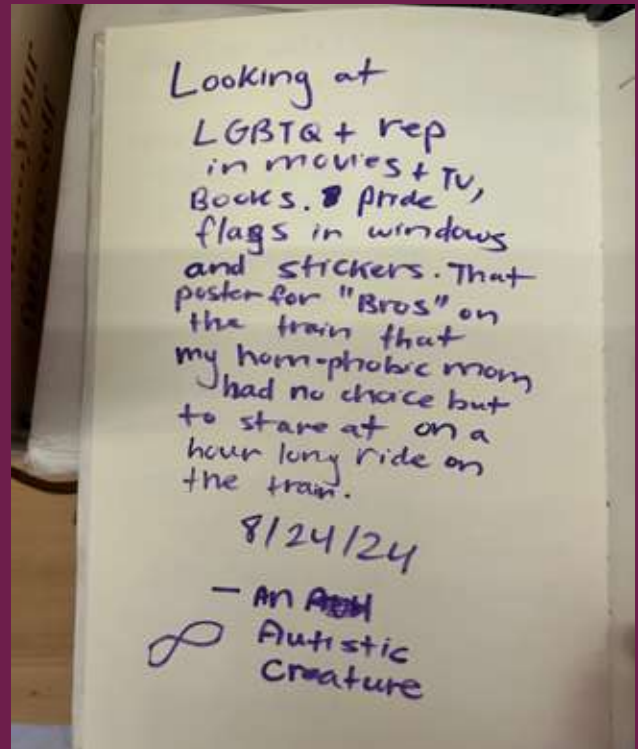 Looking at
LGBTQ+ rep
in movies + TV,
Books. Pride
flags in windows
and stickers. That
poster for "Bros" on
the train that
my hom-phobic mom
had no choice but
to stare at on a
hour long ride on
the train.
8/24/24
- An
Autistic
Creature